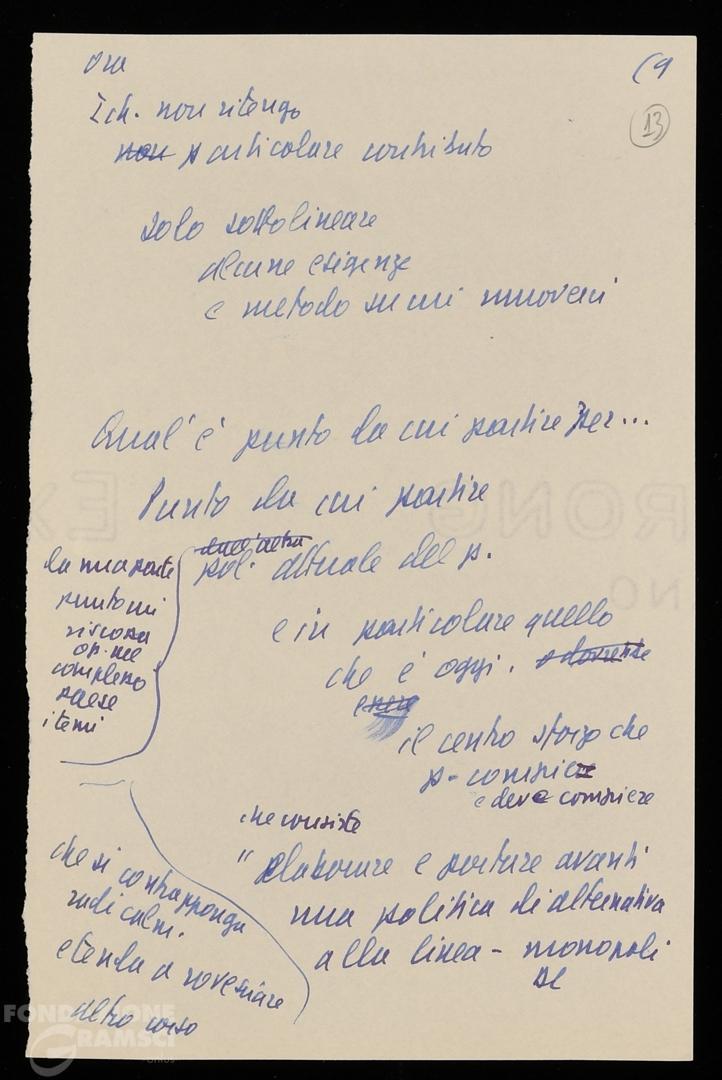 ora
(9
13
I ch. non ritengo
non particolare contributo
solo sottolineare
alcune esigenze
e metodo su cui muoverci
Qual'è punto da cui partire per...
Punto da cui partire
dall'altra
pol. attuale del p.
e in particolare quello
che è oggi. e dovrebbe
essere
il centro sforzo che
p. compie
e deve compiere
che consiste
" elaborare e portare avanti
una politica di alternativa
alla linea - monopoli
DC
da una parte
punto cui
complesso
paese
i temi
che si contrapponga
radicalm.
e tenda a rovesciare
altro corso
RONG
FONDAZIONE
GRAMSCI
ONLUS